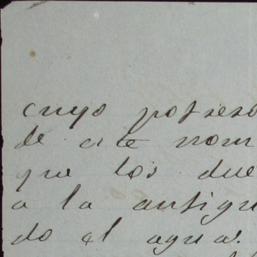 cuyo
de este nom
que los due
a la antigu
do el agua.